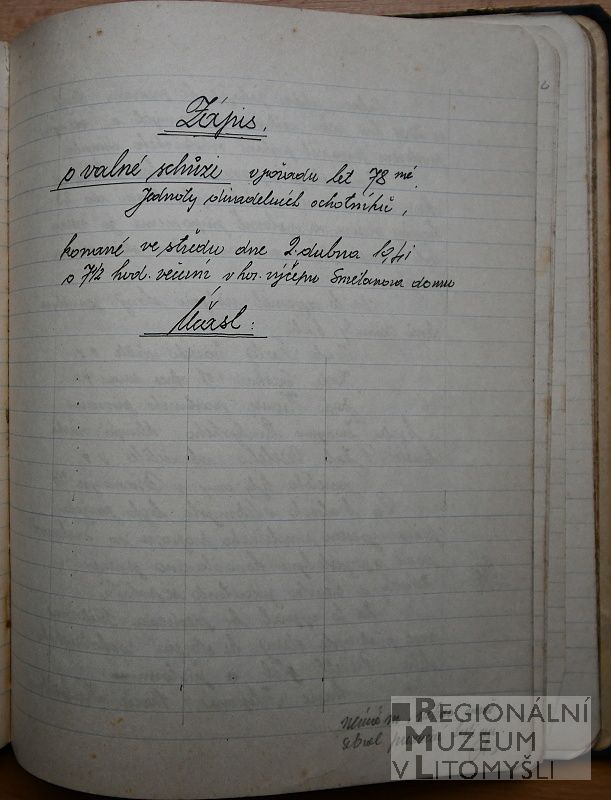 Zápis.
o valné schůzi v pořadu let 78 mé
Jednoty divadelních ochotníků,
konané ve středu dne 2. dubna 1941
o 7 1/2 hod. večerní v hor. výčepu Smetanova domu
Účast:
REGIONÁLNÍ
MUZEUM
V LITOMYŠLI